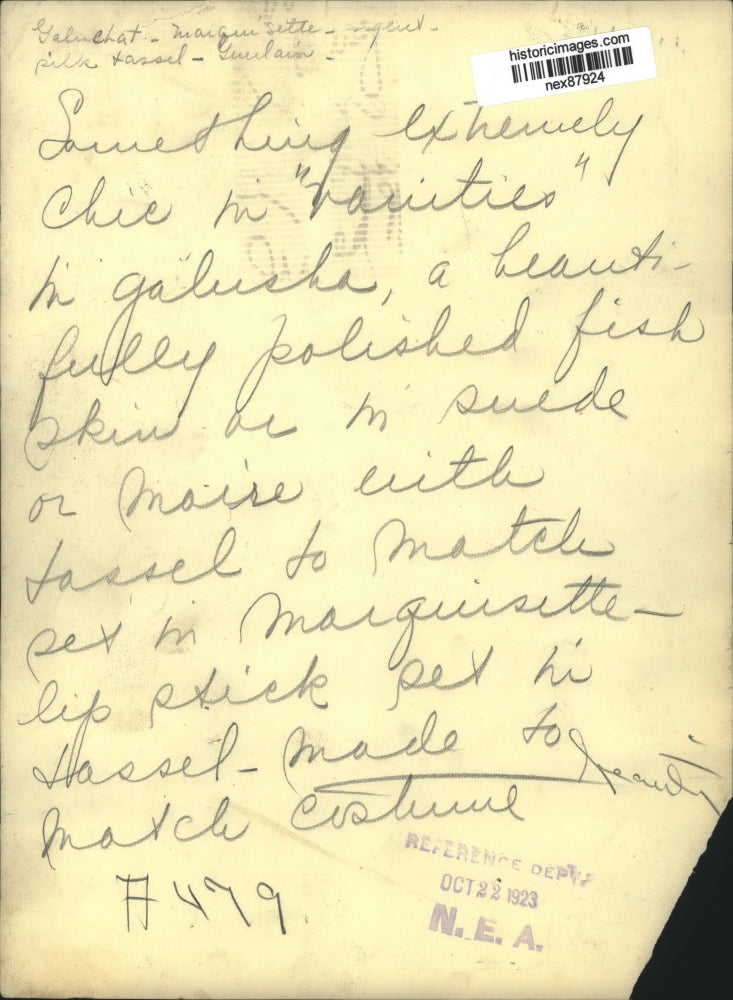 Galuchat - marquisette - argent -
silk tassel - Guerlain -
historicimages.com
nex87924
Something extremely
chic in "vanities"
in galusha, a beauti-
fully polished fish
skin or in suede
or moire with
tassel to match
set in marquisette -
lip stick set in
tassel - made to
beauty
match costume
REFERENCE DEPT.
OCT 22 1923
N. E. A.
A479